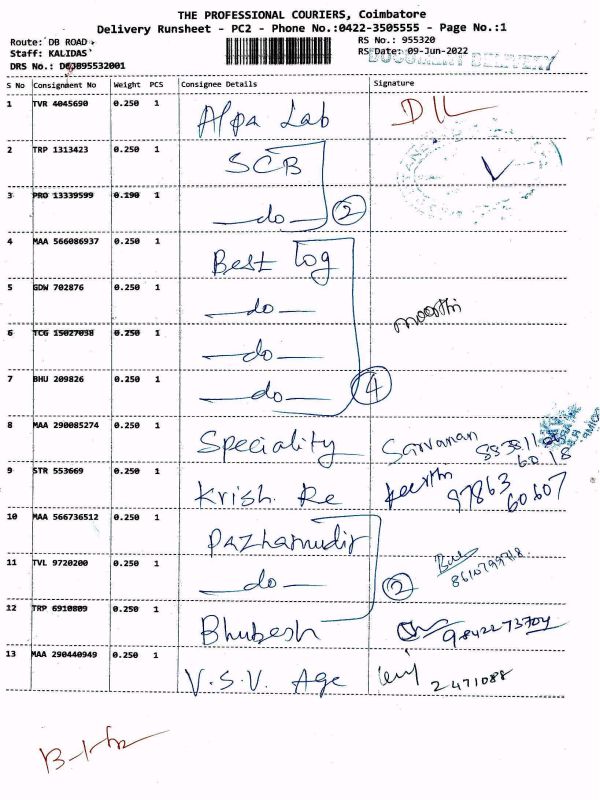 THE PROFESSIONAL COURIERS, Coimbatore
Delivery Runsheet - PC2 - Phone No.:0422-3505555 - Page No.:1
Route: DB ROAD
RS No.: 955320
Staff: KALIDAS
RS Date: 09-Jun-2022
DOCUMENT DELIVERY
DRS No.: D0J895532001
S No Consignment No Weight PCS Consignee Details Signature
1 TVR 4045690 0.250 1 Alpa Lab
2 TRP 1313423 0.250 1 SCB
3 PRO 13339599 0.190 1 do 2
4 MAA 566086937 0.250 1 Best log
5 GDW 702876 0.250 1 do moorthi
6 TCG 15027038 0.250 1 do
7 BHU 209826 0.250 1 do 4
8 MAA 290085274 0.250 1 Speciality Sarvanan
6018
9 STR 553669 0.250 1 Krish. Re Keerthi 97863
60607
10 MAA 566736512 0.250 1 Pazhamudir
11 TVL 9720200 0.250 1 do 2
12 TRP 6910809 0.250 1 Bhubesh 9842273704
13 MAA 290440949 0.250 1 V.S.V. Age 2471088